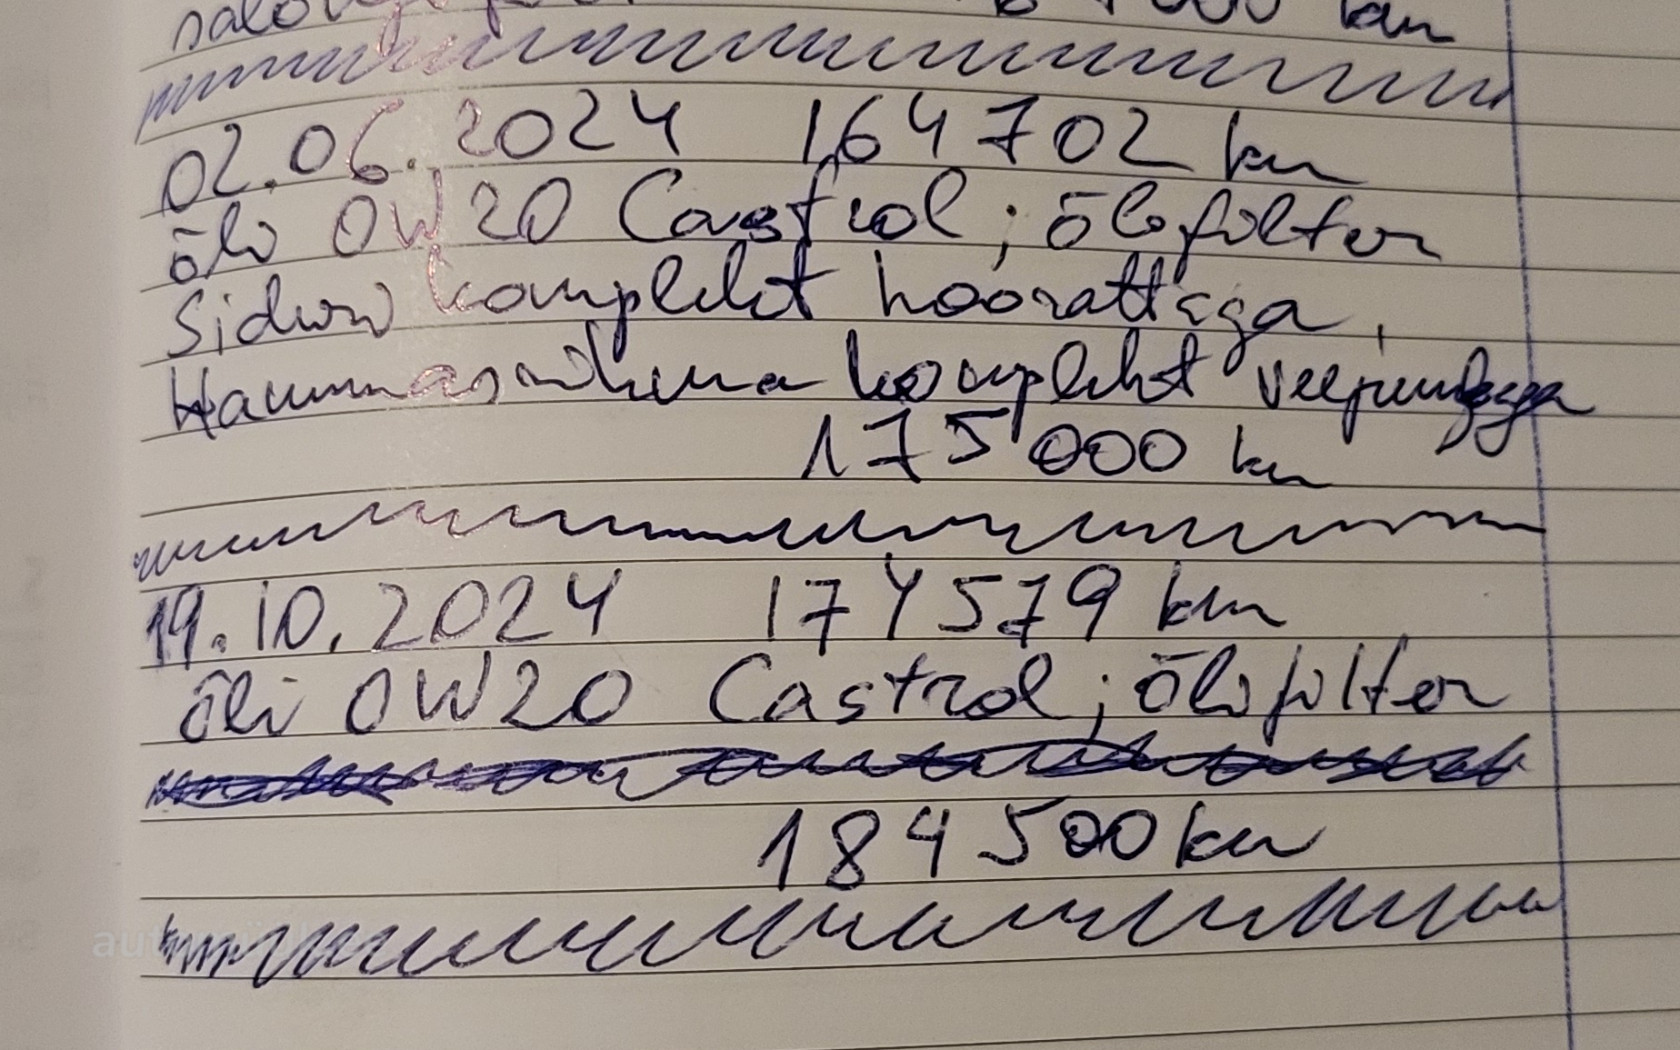 km
02.06.2024 164 702 km
õli 0W20 Castrol; õlifilter
Siduri komplekt hoorattaga,
Hammasrihma komplekt veepumbaga
175 000 km
19.10.2024 174 579 km
õli 0W20 Castrol; õlifilter
184 500 km